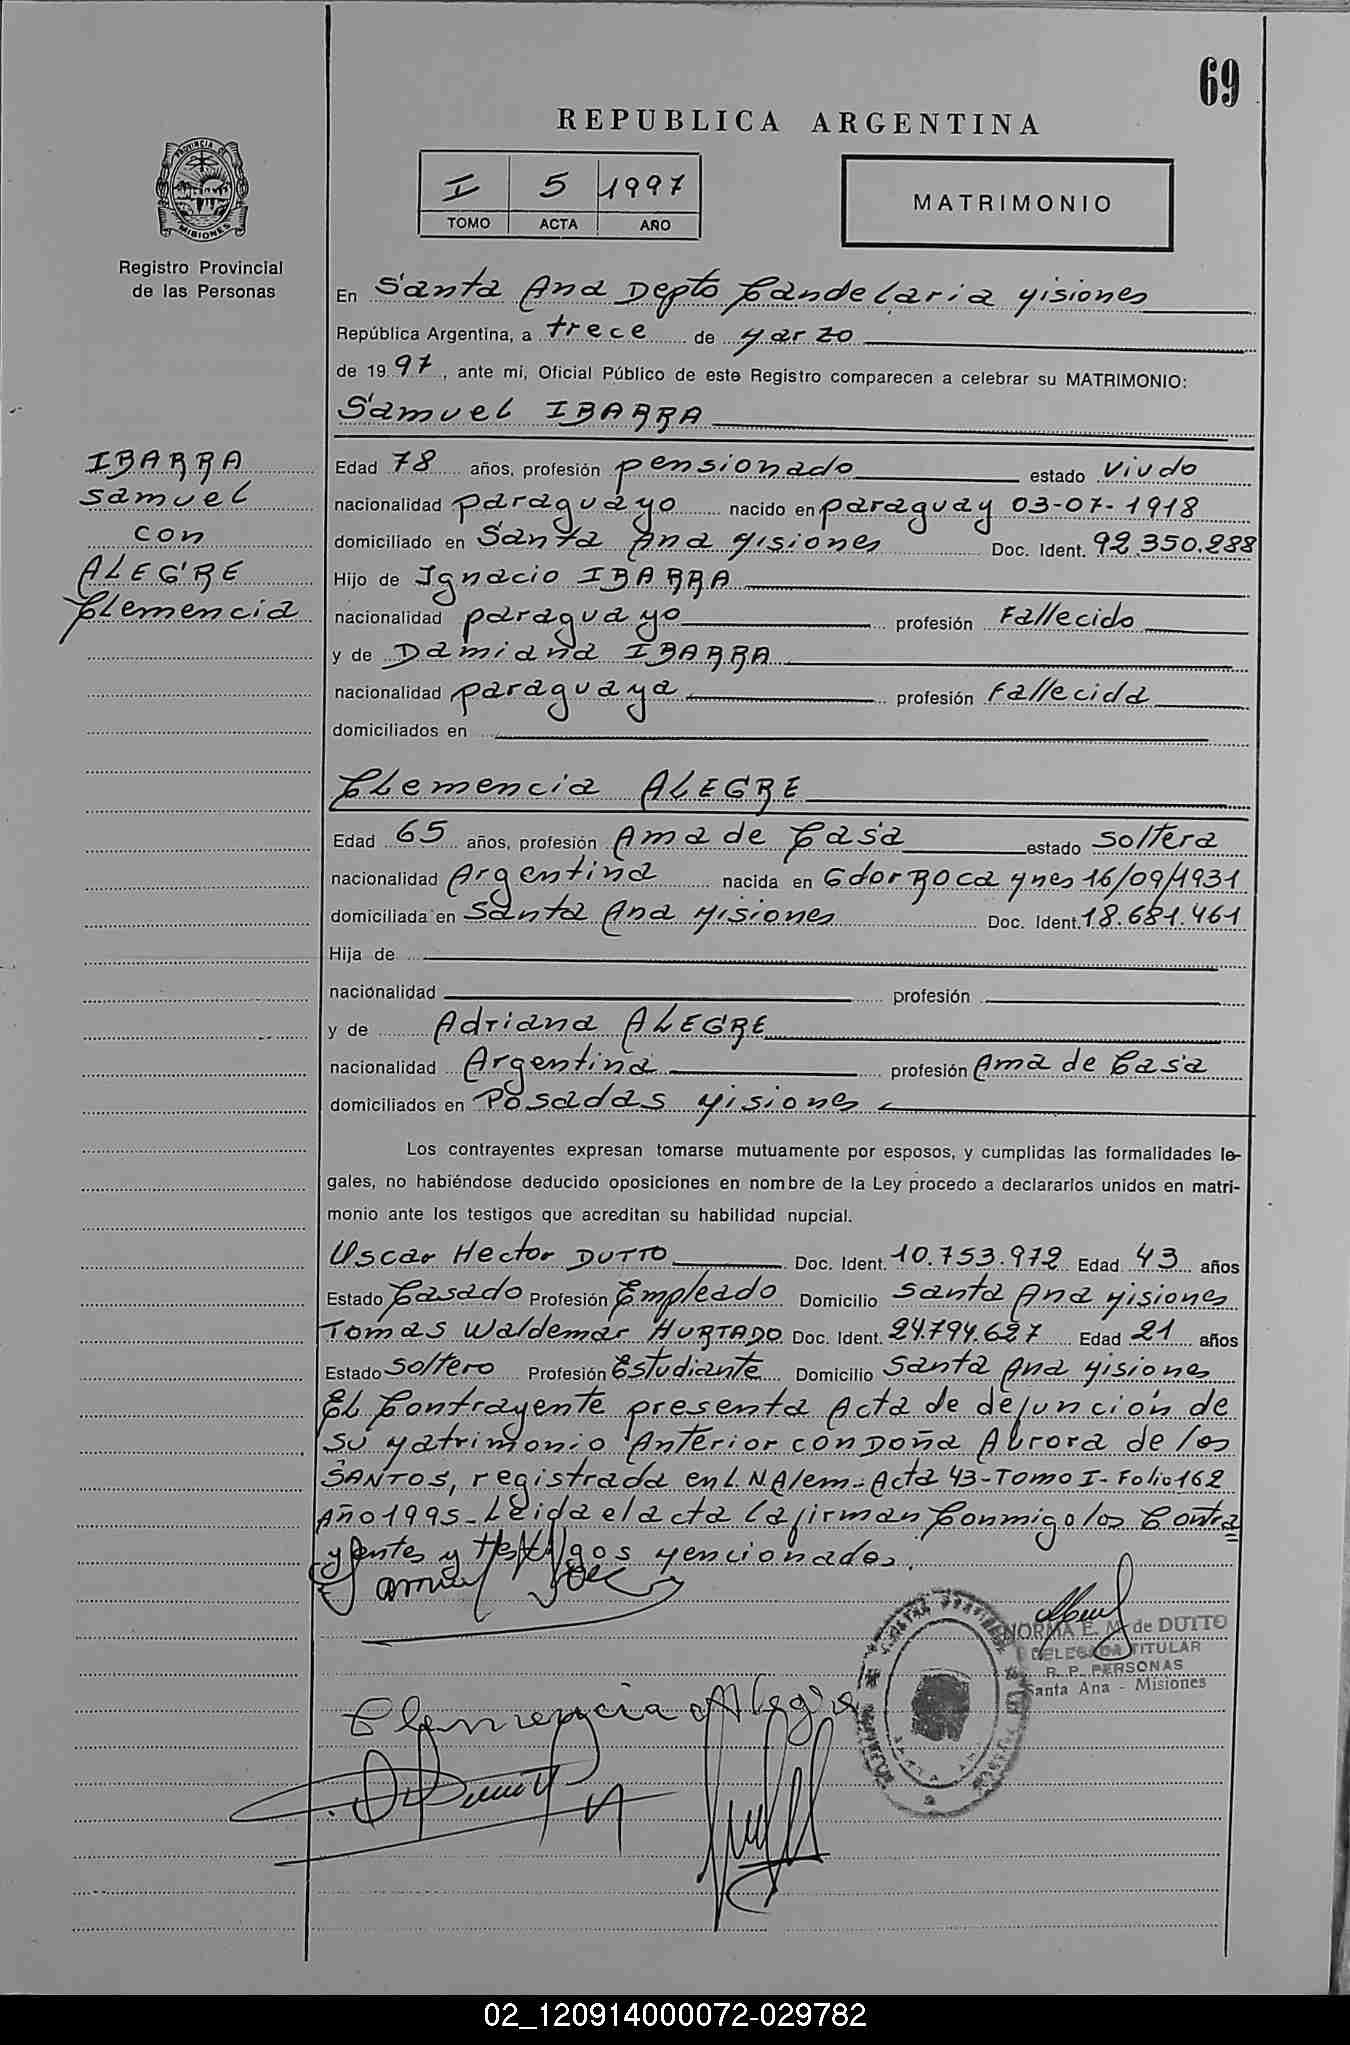 69
REPUBLICA ARGENTINA
I 5 1997
TOMO ACTA AÑO
MATRIMONIO
PROVINCIA DE
MISIONES
Registro Provincial
de las Personas
En Santa Ana Depto Candelaria Misiones
República Argentina, a trece de Marzo
de 1997, ante mí, Oficial Público de este Registro comparecen a celebrar su MATRIMONIO:
Samuel IBARRA
IBARRA
Samuel
con
ALEGRE
Clemencia
Edad 78 años, profesión pensionado estado viudo
nacionalidad paraguayo nacido en paraguay 03-07-1918
domiciliado en Santa Ana Misiones Doc. Ident. 92.350.288
Hijo de Ignacio IBARRA
nacionalidad paraguayo profesión Fallecido
y de Damiana IBARRA
nacionalidad paraguaya profesión Fallecida
domiciliados en
Clemencia ALEGRE
Edad 65 años, profesión Ama de Casa estado Soltera
nacionalidad Argentina nacida en Gdor ROCA Mnes 16/09/1931
domiciliada en Santa Ana Misiones Doc. Ident. 18.681.461
Hija de
nacionalidad profesión
y de Adriana ALEGRE
nacionalidad Argentina profesión Ama de Casa
domiciliados en Posadas Misiones
Los contrayentes expresan tomarse mutuamente por esposos, y cumplidas las formalidades le-
gales, no habiéndose deducido oposiciones en nombre de la Ley procedo a declararlos unidos en matri-
monio ante los testigos que acreditan su habilidad nupcial.
Oscar Hector DUTTO Doc. Ident. 10.753.972 Edad 43 años
Estado Casado Profesión Empleado Domicilio Santa Ana Misiones
Tomas Waldemar HURTADO Doc. Ident. 24.794.627 Edad 21 años
Estado Soltero Profesión Estudiante Domicilio Santa Ana Misiones
El Contrayente presenta Acta de defunción de
su Matrimonio Anterior con Doña Aurora de los
SANTOS, registrada en L.N.Alem.- Acta 43-Tomo I-Folio 162
Año 1995- Leida el acta la firman Conmigo los Contra
yentes y testigos Mencionados.
NORMA E. M. de DUTTO
DELEGADA TITULAR
R. P. PERSONAS
Santa Ana - Misiones
Clemencia Alegre
02_120914000072-029782